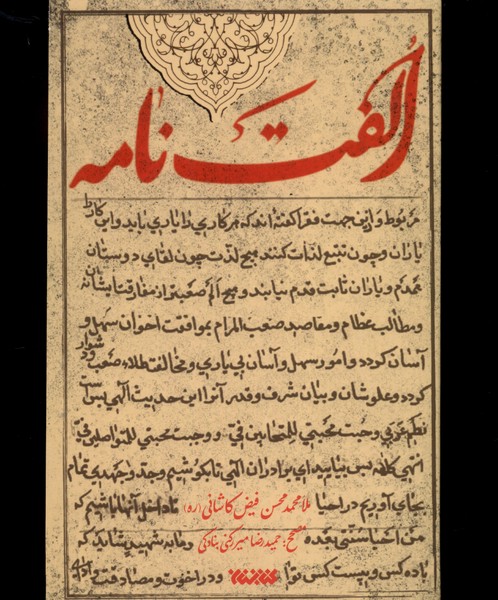 الفت نامه
مربوط و ازین جهت فقرا گفته‌اند که هر کاری را یاری باید و این کار را
یاران و چون تتبع لذات کنند هیچ لذت چون لقای دوستان
همدم و یاران ثابت قدم نیابند و هیچ الم صعبتر از مفارقت ایشان نه
و مطالب عظام و مقاصد صعب المرام بموافقت اخوان سهل و
آسان گردد و امور سهل و آسان بی یاری و مخالفت صعب و دشوار
گردد و علو شان و بیان شرف و قدر آنرا این حدیث الهی بس است
وجبت محبتی للمتحابین فی و وجبت محبتی للمتواصلین فی
انتهی کلامه پس بیایید ای برادران الهی تا بکوشیم و جد و جهدی تمام
بجای آوریم در احیا ملا محمد محسن فیض کاشانی (ره) تا داخل آنها باشیم که
من احیا سنتی بعده مصحح: حمیدرضا میرکنی بنادکی و صد شهید شاید که
یاده کس و بیست کس توا و در اخوت و مصادقت و